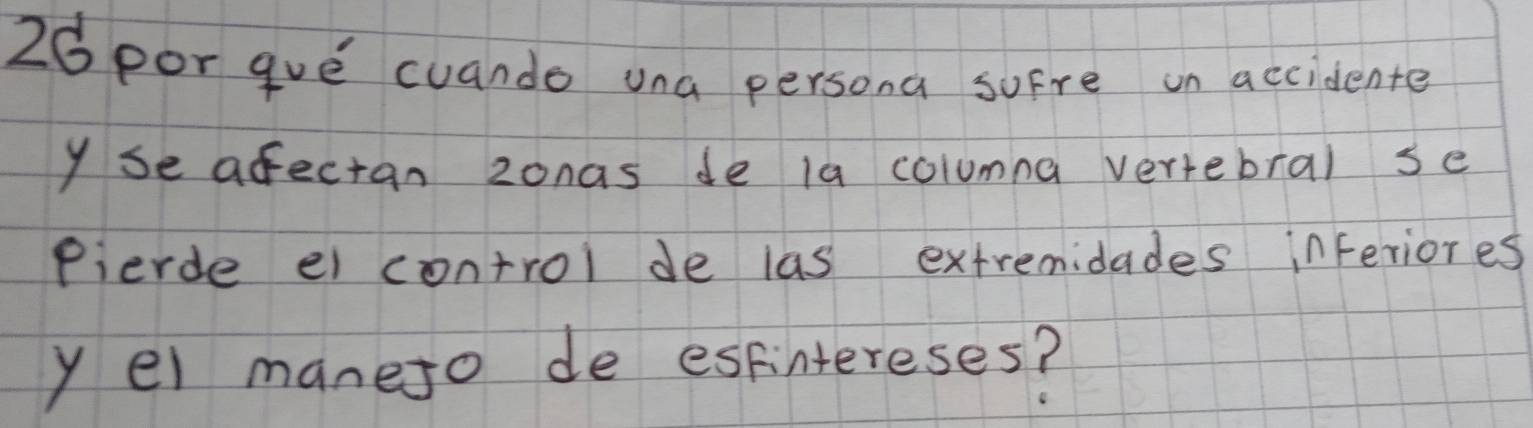 26 por qué cuando una persona sufre un accidente
y se afectan zonas de la columna vertebral se
Pierde el control de las extremidades inferiores
y el manejo de esfintereses?